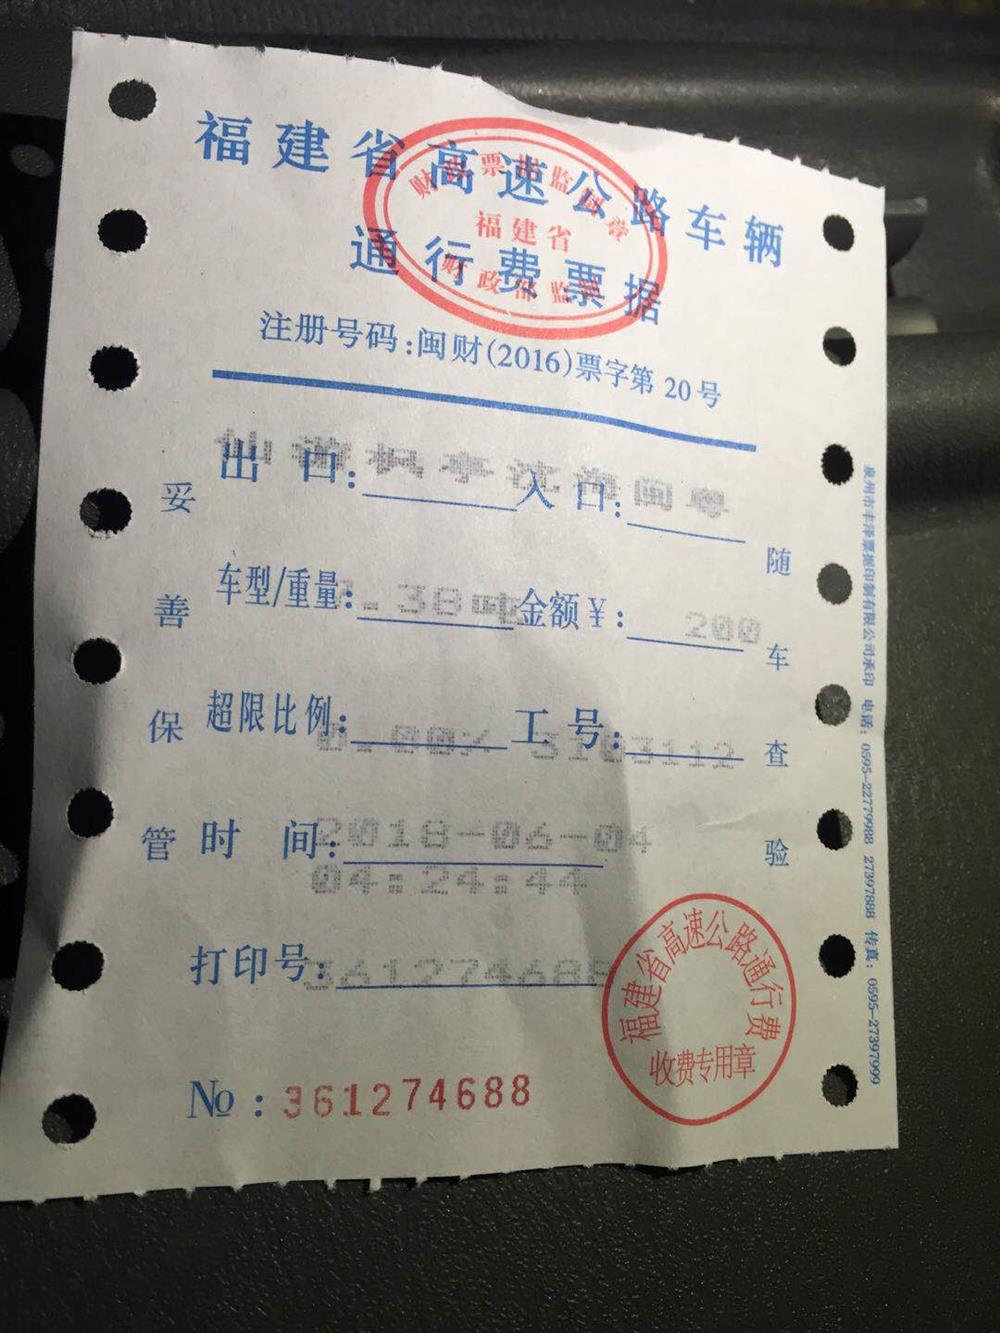 福建省高速公路车辆
通行费票据
福建省
注册号码:闽财(2016)票字第 20号
仙游枫亭沈海闽粤
出 口: 入口:
车型/重量: .38吨 金额￥: 200
超限比例: 0.00% 工号: 3103112
时 间: 2018-06-04
04:24:44
打印号: 361274688
No : 361274688
妥善保管
随车查验
福建省高速公路通行费
收费专用章
泉州市丰泽票据印制有限公司承印 电话: 0595-22779988 27397888 传真: 0595-27397999